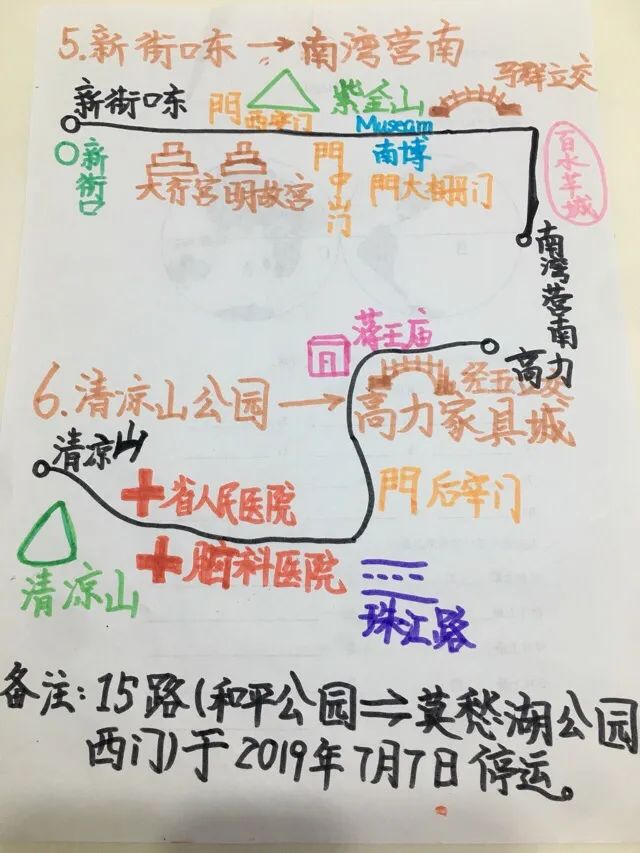 5.新街口东→南湾营南
马群立交
新街口东
門
西安门
紫金山
Museam
南博
新街口
大齐宫
明故宫
門中山门
門大栅门
百水芊城
南湾营南
蒋王庙
高力
经五立交
6.清凉山公园→高力家具城
清凉山
省人民医院
門后宰门
脑科医院
清凉山
珠江路
备注:15路(和平公园⇌莫愁湖公园
西门)于2019年7月7日停运。